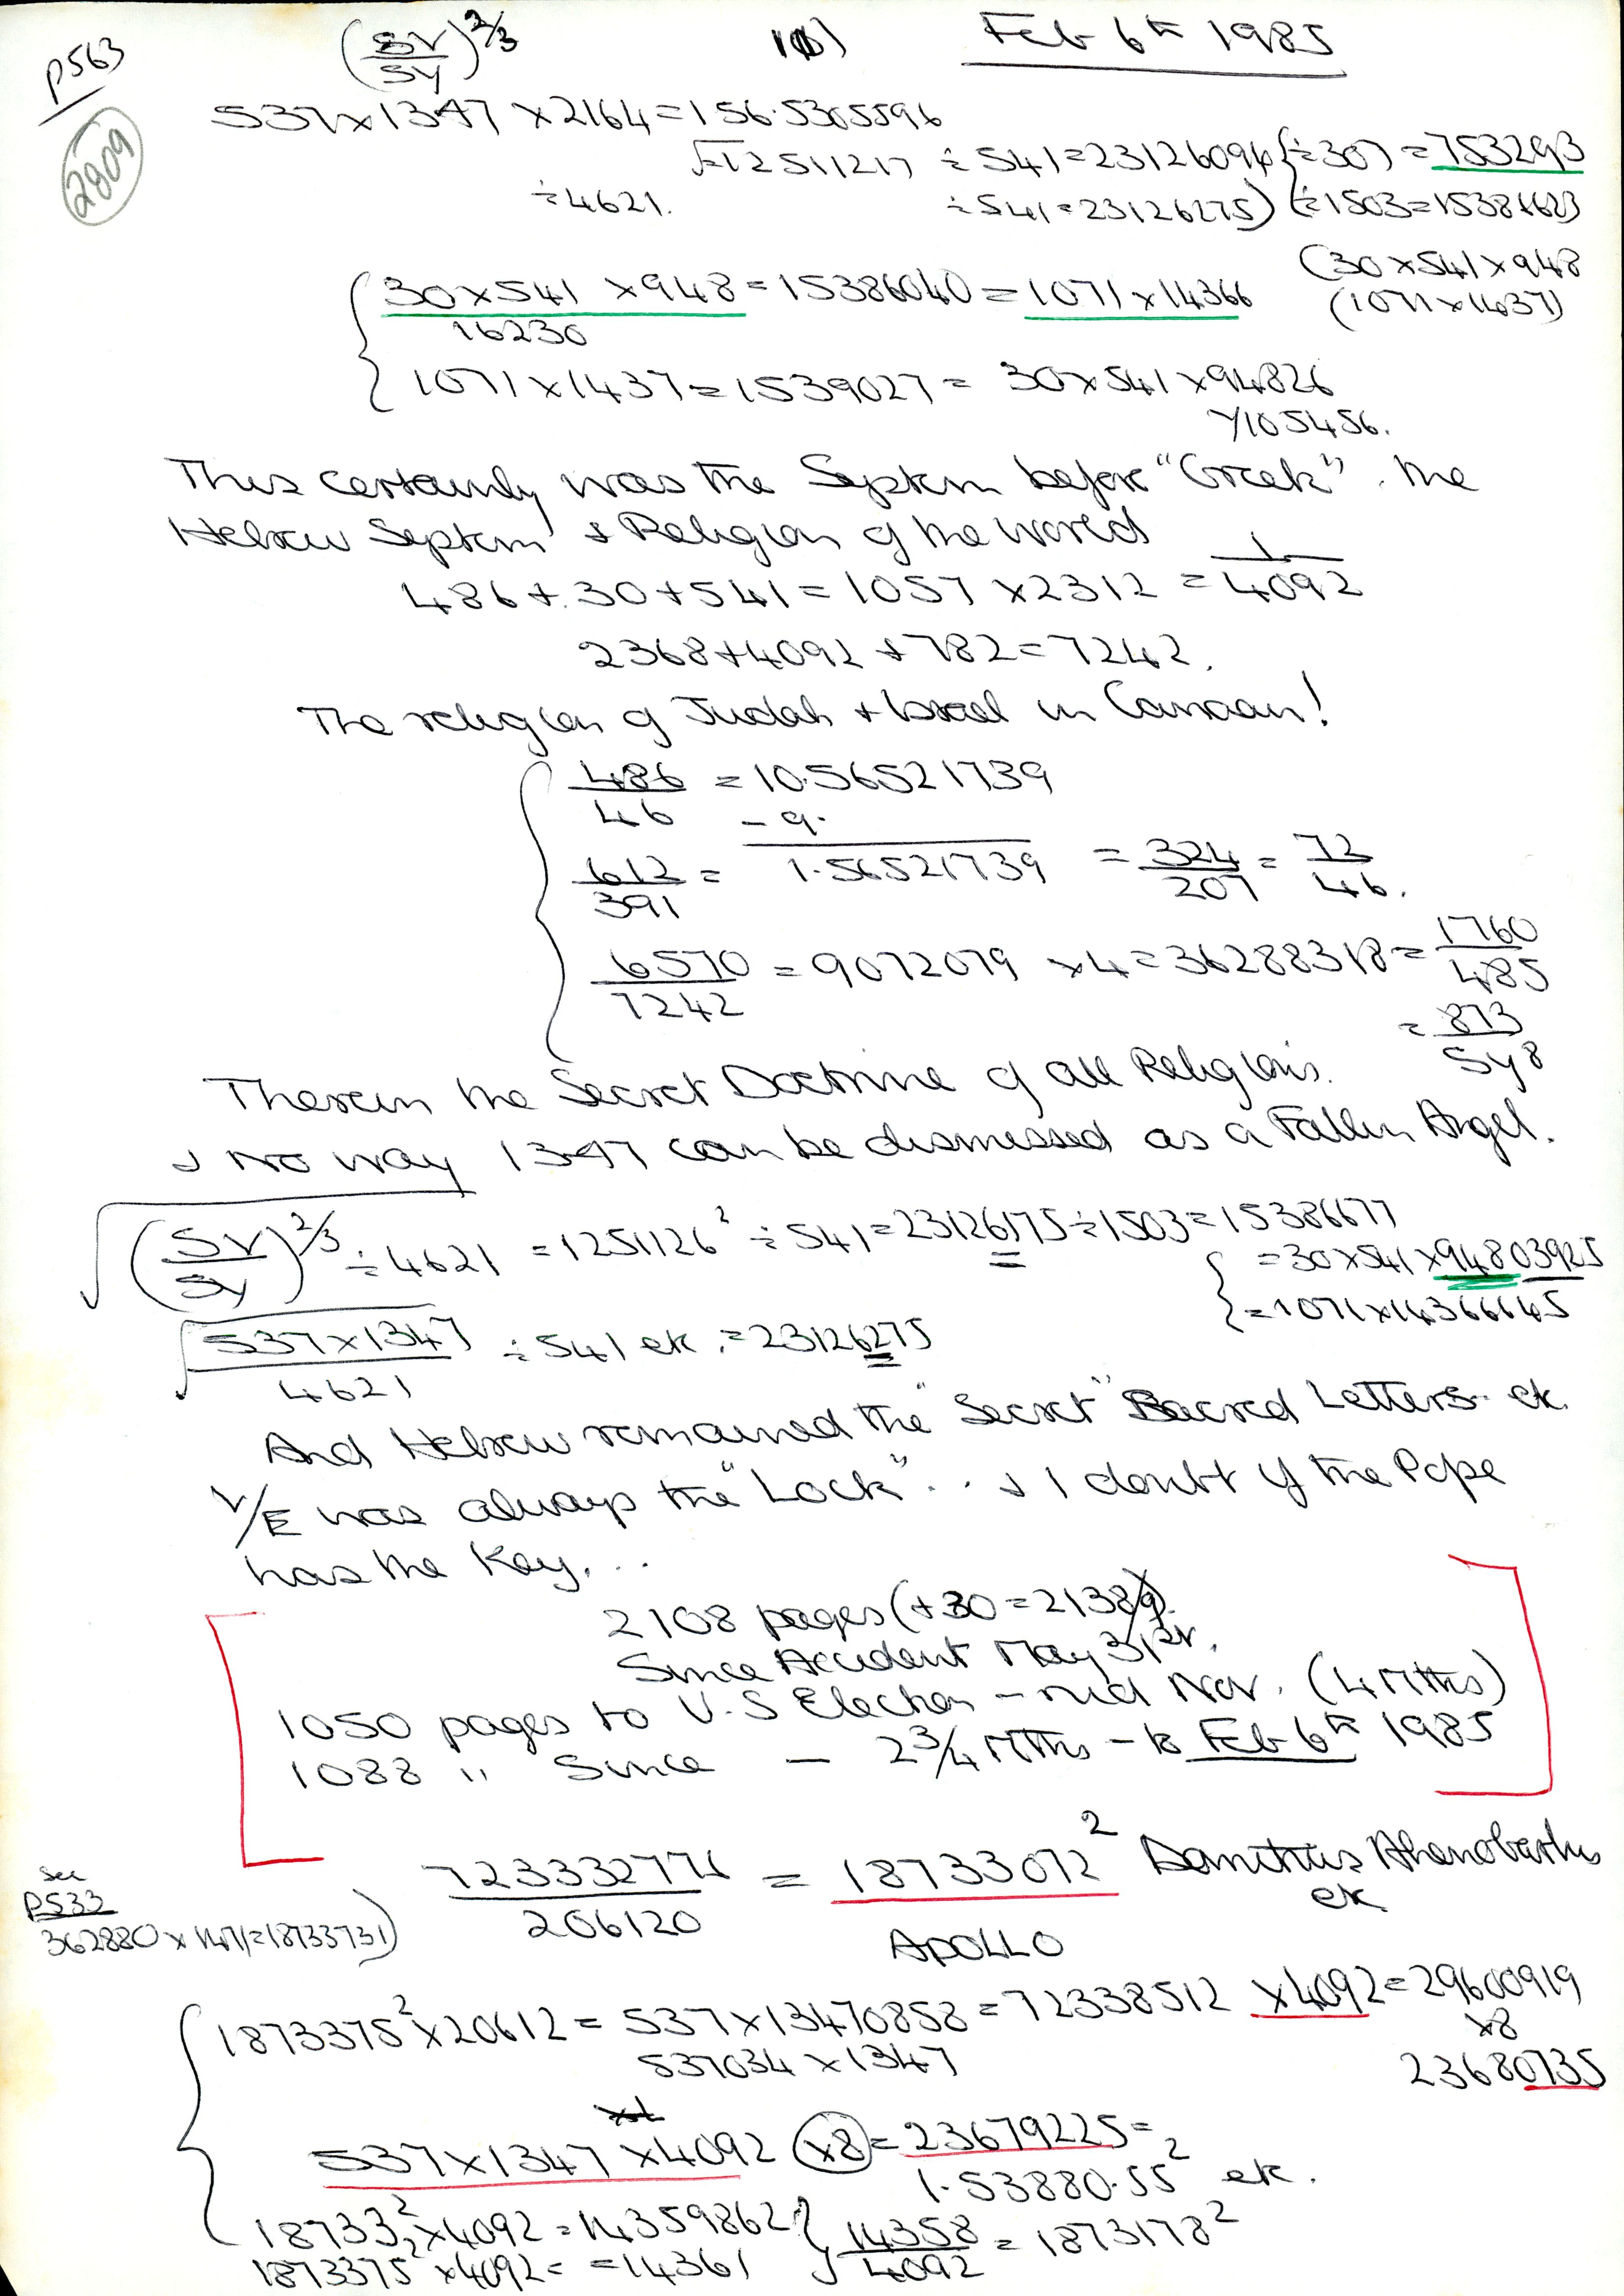 P563
2809
(SV/SY)^2/3
Feb 6th 1985
537×1347×2164=156.5305596
√=12511217 ÷541=23126094 {÷307 = 753293
÷4621. ÷541=23126275) (÷1503=15387623
(30×541×948
30×541×948=15386040=1071×14366
(1071×1437)
16230
1071×1437=1539027= 30×541×94826
Y105456.
This certainly was the System before "Greek". The
Hebrew System & Religion of the World
486+30+541=1057×2312=1/4092
2368+4092+782=7242.
The religion of Judah & Israel in Canaan!
486/46 = 10.56521739
-9.
612/391 = 1.56521739 = 324/207 = 72/46.
6570/7242 = 9072079 ×4=36288318=1760/485
= 873/5y8
Therein the Secret Doctrine of all Religions.
& No way 1347 can be dismissed as a Fallen Angel.
√(SV/SY)^2/3 ÷4621 =1251126² ÷541=23126175÷1503=15386677
=30×541×94803925
√537×1347/4621 ÷541 etc.=23126275
=1071×14366645
And Hebrew remained the "Secret" Sacred Letters etc.
V/E was always the "Lock"... & I doubt if the Pope
has the Key...
2108 pages (+30=2138)
Since Accident May 31st.
1050 pages to U.S Election - mid Nov. (4 Mths)
1088 " Since - 2¾ Mths - to Feb 6th 1985
See
P533
362880×1471=18733731)
723332771/206120 = 18733072² Domitius Ahenobarbus
etc
APOLLO
1873375²×20612=537×13470858=72338512 ×4092=29600919
537034×1347
×8
23680735
537×1347×4092 (×8)=23679225=
1.53880.55² etc.
18733²×4092=14359862
√14358/4092 = 1873178²
1873375²×4092= =14361